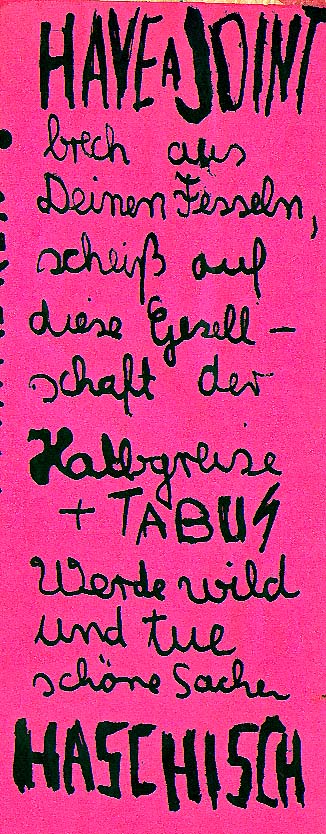 HAVE A JOINT
brech aus
Deinen Fesseln,
scheiß auf
diese Gesell-
schaft der
Halbgreise
+ TABUS
Werde wild
und tue
schöne Sachen
HASCHISCH